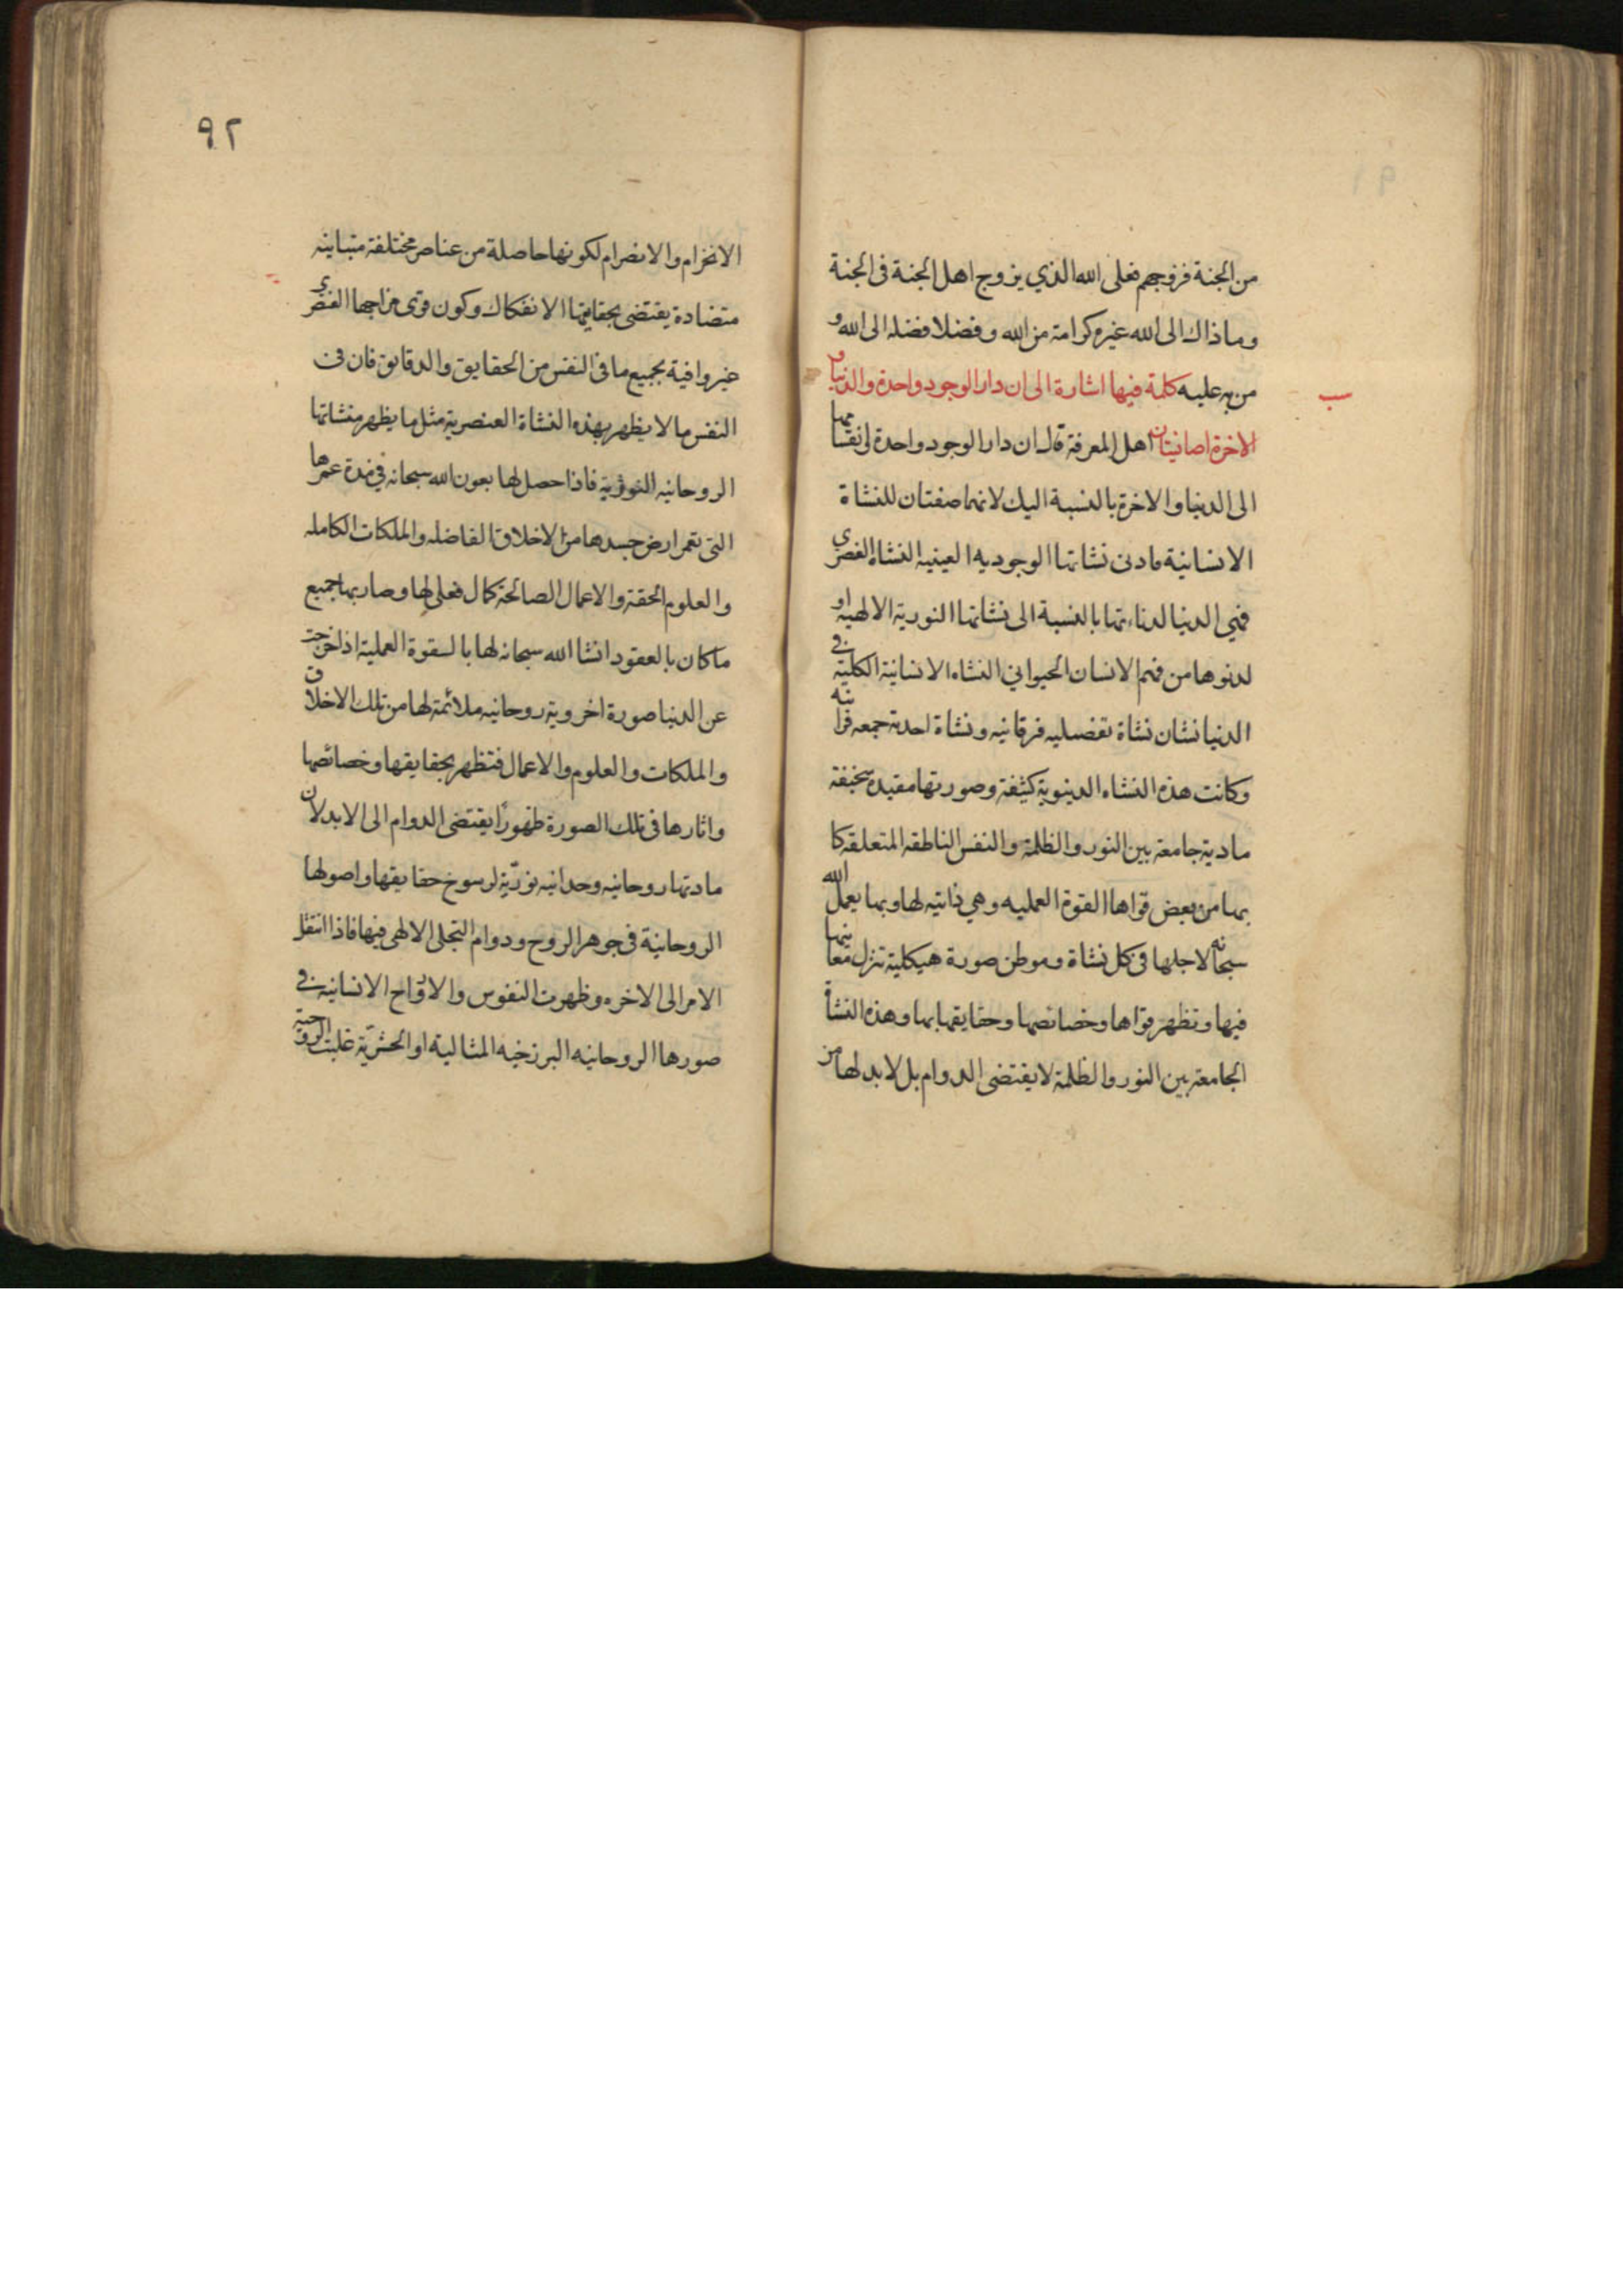 من الجنة فزوجهم فعلى الله الذي يزوج اهل الجنة فى الجنة
وما ذاك الى الله غيره كرامة من الله وفضلا فضله الى الله و
من به عليه كلمة فيها اشارة الى ان دار الوجود واحدة والدنيا و
الاخرة اضافيتان اهل المعرفة قال ان دار الوجود واحدة انقسامها
الى الدنيا والاخرة بالنسبة اليك لانهما صفتان للنشاة
الانسانية فادنى نشاتها الوجوديه العينيه النشاه العنصرى
فهي الدنيا لدناءتها بالنسبة الى نشاتها النورية الالهيه او
لدنوها من فهم الانسان الحيواني النشاه الانسانية الكلية فى
الدنيا نشان نشاة تفصليه فرقانيه ونشاة احدية جمعه قرانيه
وكانت هذه النشاه الدينوية كثيفة وصورتها مقيده سخيفة
مادية جامعة بين النور والظلمة والنفس الناطقه المتعلقه كا
بها من بعض قواها القوة العمليه وهي ذاتيه لها وبها يعمل الله
سبحانه لاجلها فى كل نشاة وموطن صورة هيكلية تنزل معانيها
فيها وتظهر قواها وخصائصها وحقايقها بها وهذه النشاة
الجامعة بين النور والظلمة لا يقتضى الدوام بل لابد لها من
٩٢
الانخرام والانصرام لكونها حاصلة من عناصر مختلفة متباينه
متضادة يقتضى بحقايقها الانفكاك وكون قوى مزاجها العنصرى
غير وافية بجميع ما فى النفس من الحقايق والدقايق فان فى
النفس ما لا يظهر بهذه النشاة العنصرية مثل ما يظهر منشاتها
الروحانيه النورية فاذا حصل لها بعون الله سبحانه في مدة عمرها
التى تعمر ارض جسدها من الاخلاق الفاضله والملكات الكامله
والعلوم الحقة والاعمال الصالحة كمال فعلى لها وصار بها جميع
ما كان بالعقود انشا الله سبحانه لها بالسقوة العملية اذا خرجت
عن الدنيا صورة اخروية روحانيه ملائمة لها من تلك الاخلاق
والملكات والعلوم والاعمال فتظهر بحقايقها وخصائصها
واثارها فى تلك الصورة ظهورًا يقتضى الدوام الى الابد لان
مادتها روحانيه وحدانيه نوريّة لرسوخ حقايقها واصولها
الروحانية فى جوهر الروح ودوام التجلى الالهى فيها فاذا انتقل
الامر الى الاخره وظهرت النفوس والارواح الانسانيه فى
صورها الروحانيه البرزخيه المثالية او الحشريّة غلبت الروحية
ب